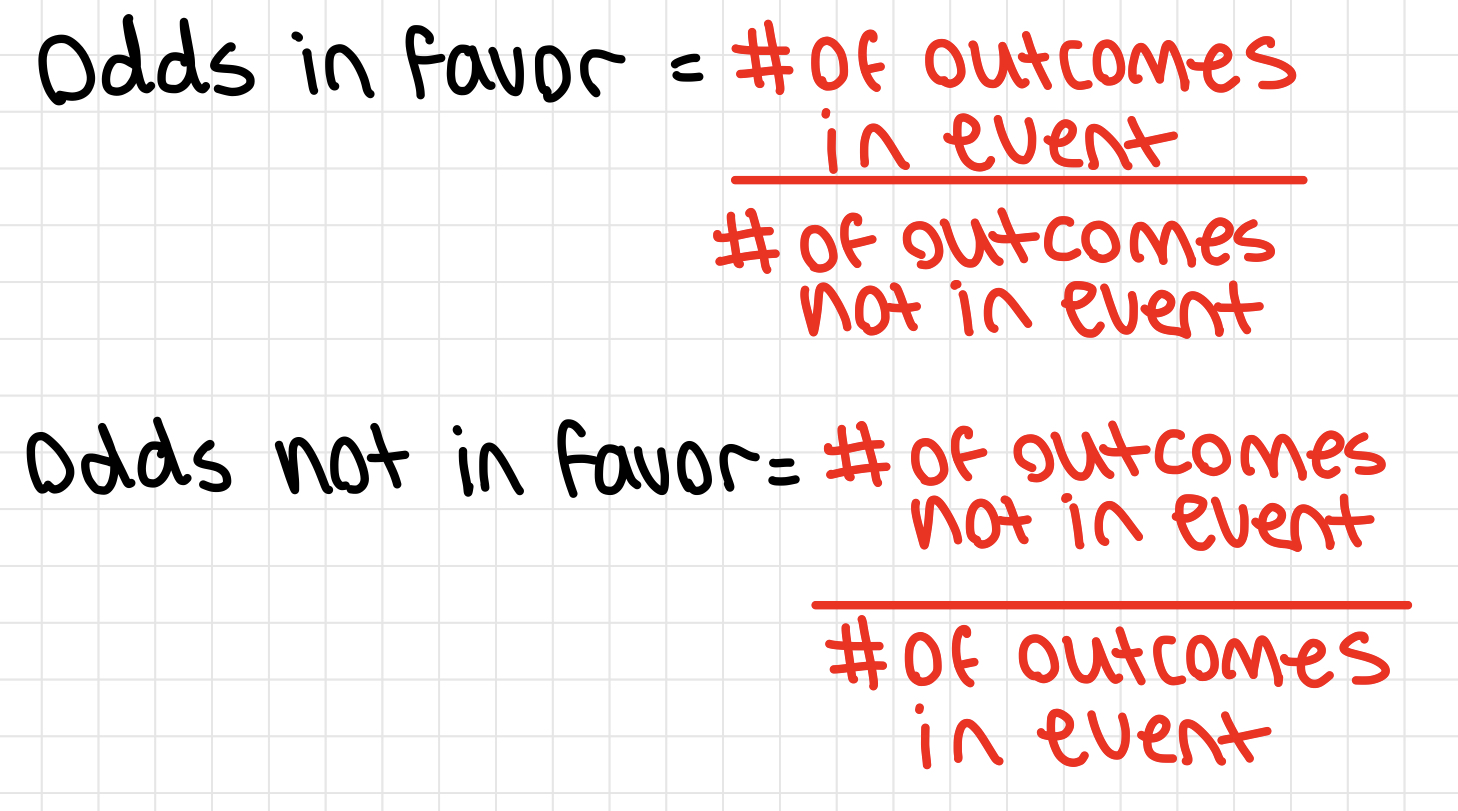 Odds in favor = # of outcomes
in event
# of outcomes
not in event
Odds not in favor = # of outcomes
not in event
# of outcomes
in event